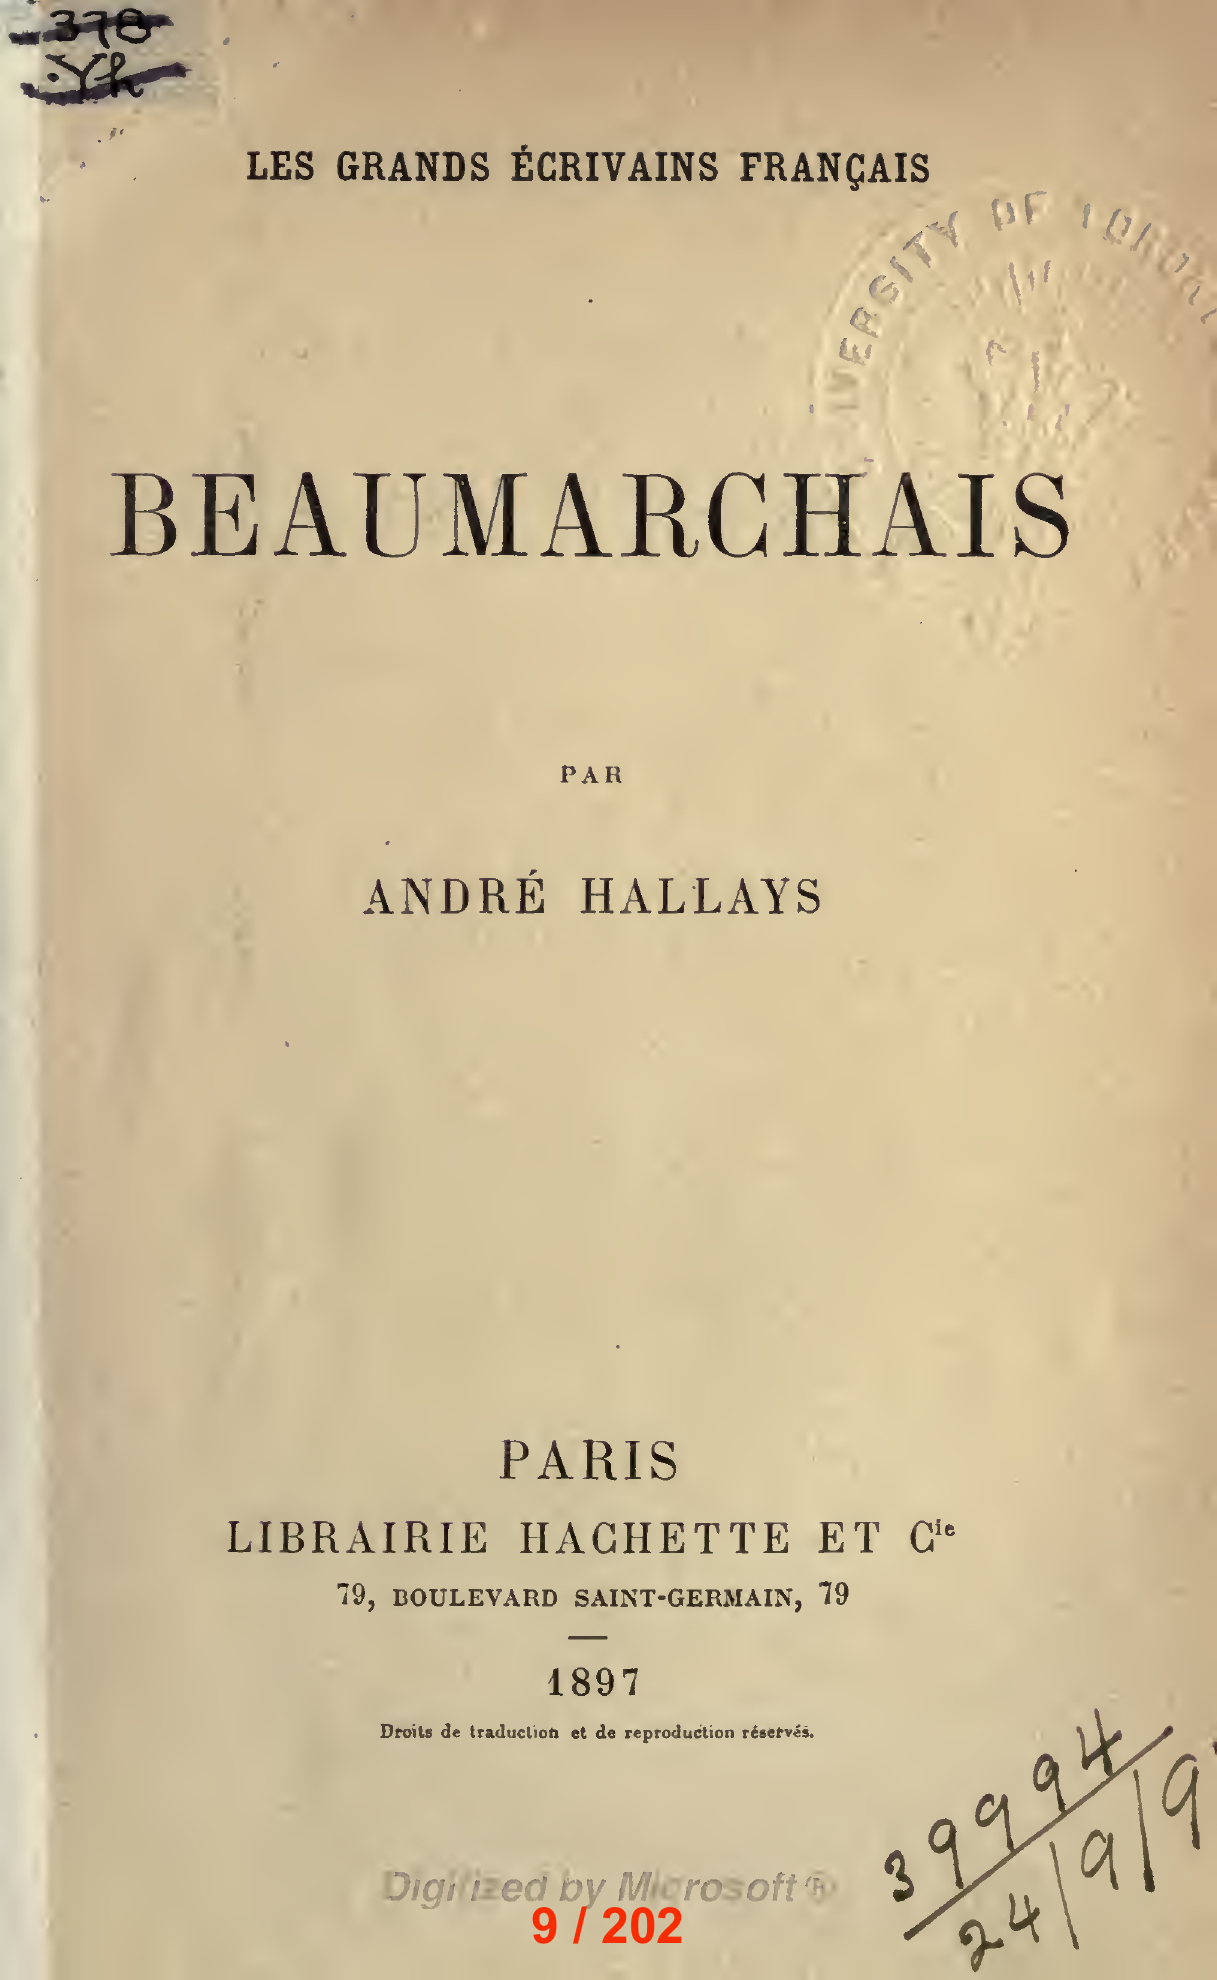 378
Yh
LES GRANDS ÉCRIVAINS FRANÇAIS
VERSITY OF
BEAUMARCHAIS
PAR
ANDRÉ HALLAYS
PARIS
LIBRAIRIE HACHETTE ET Cie
79, BOULEVARD SAINT-GERMAIN, 79
1897
Droits de traduction et de reproduction réservés.
39994
24/9/9
Digitized by Microsoft ®
9 / 202